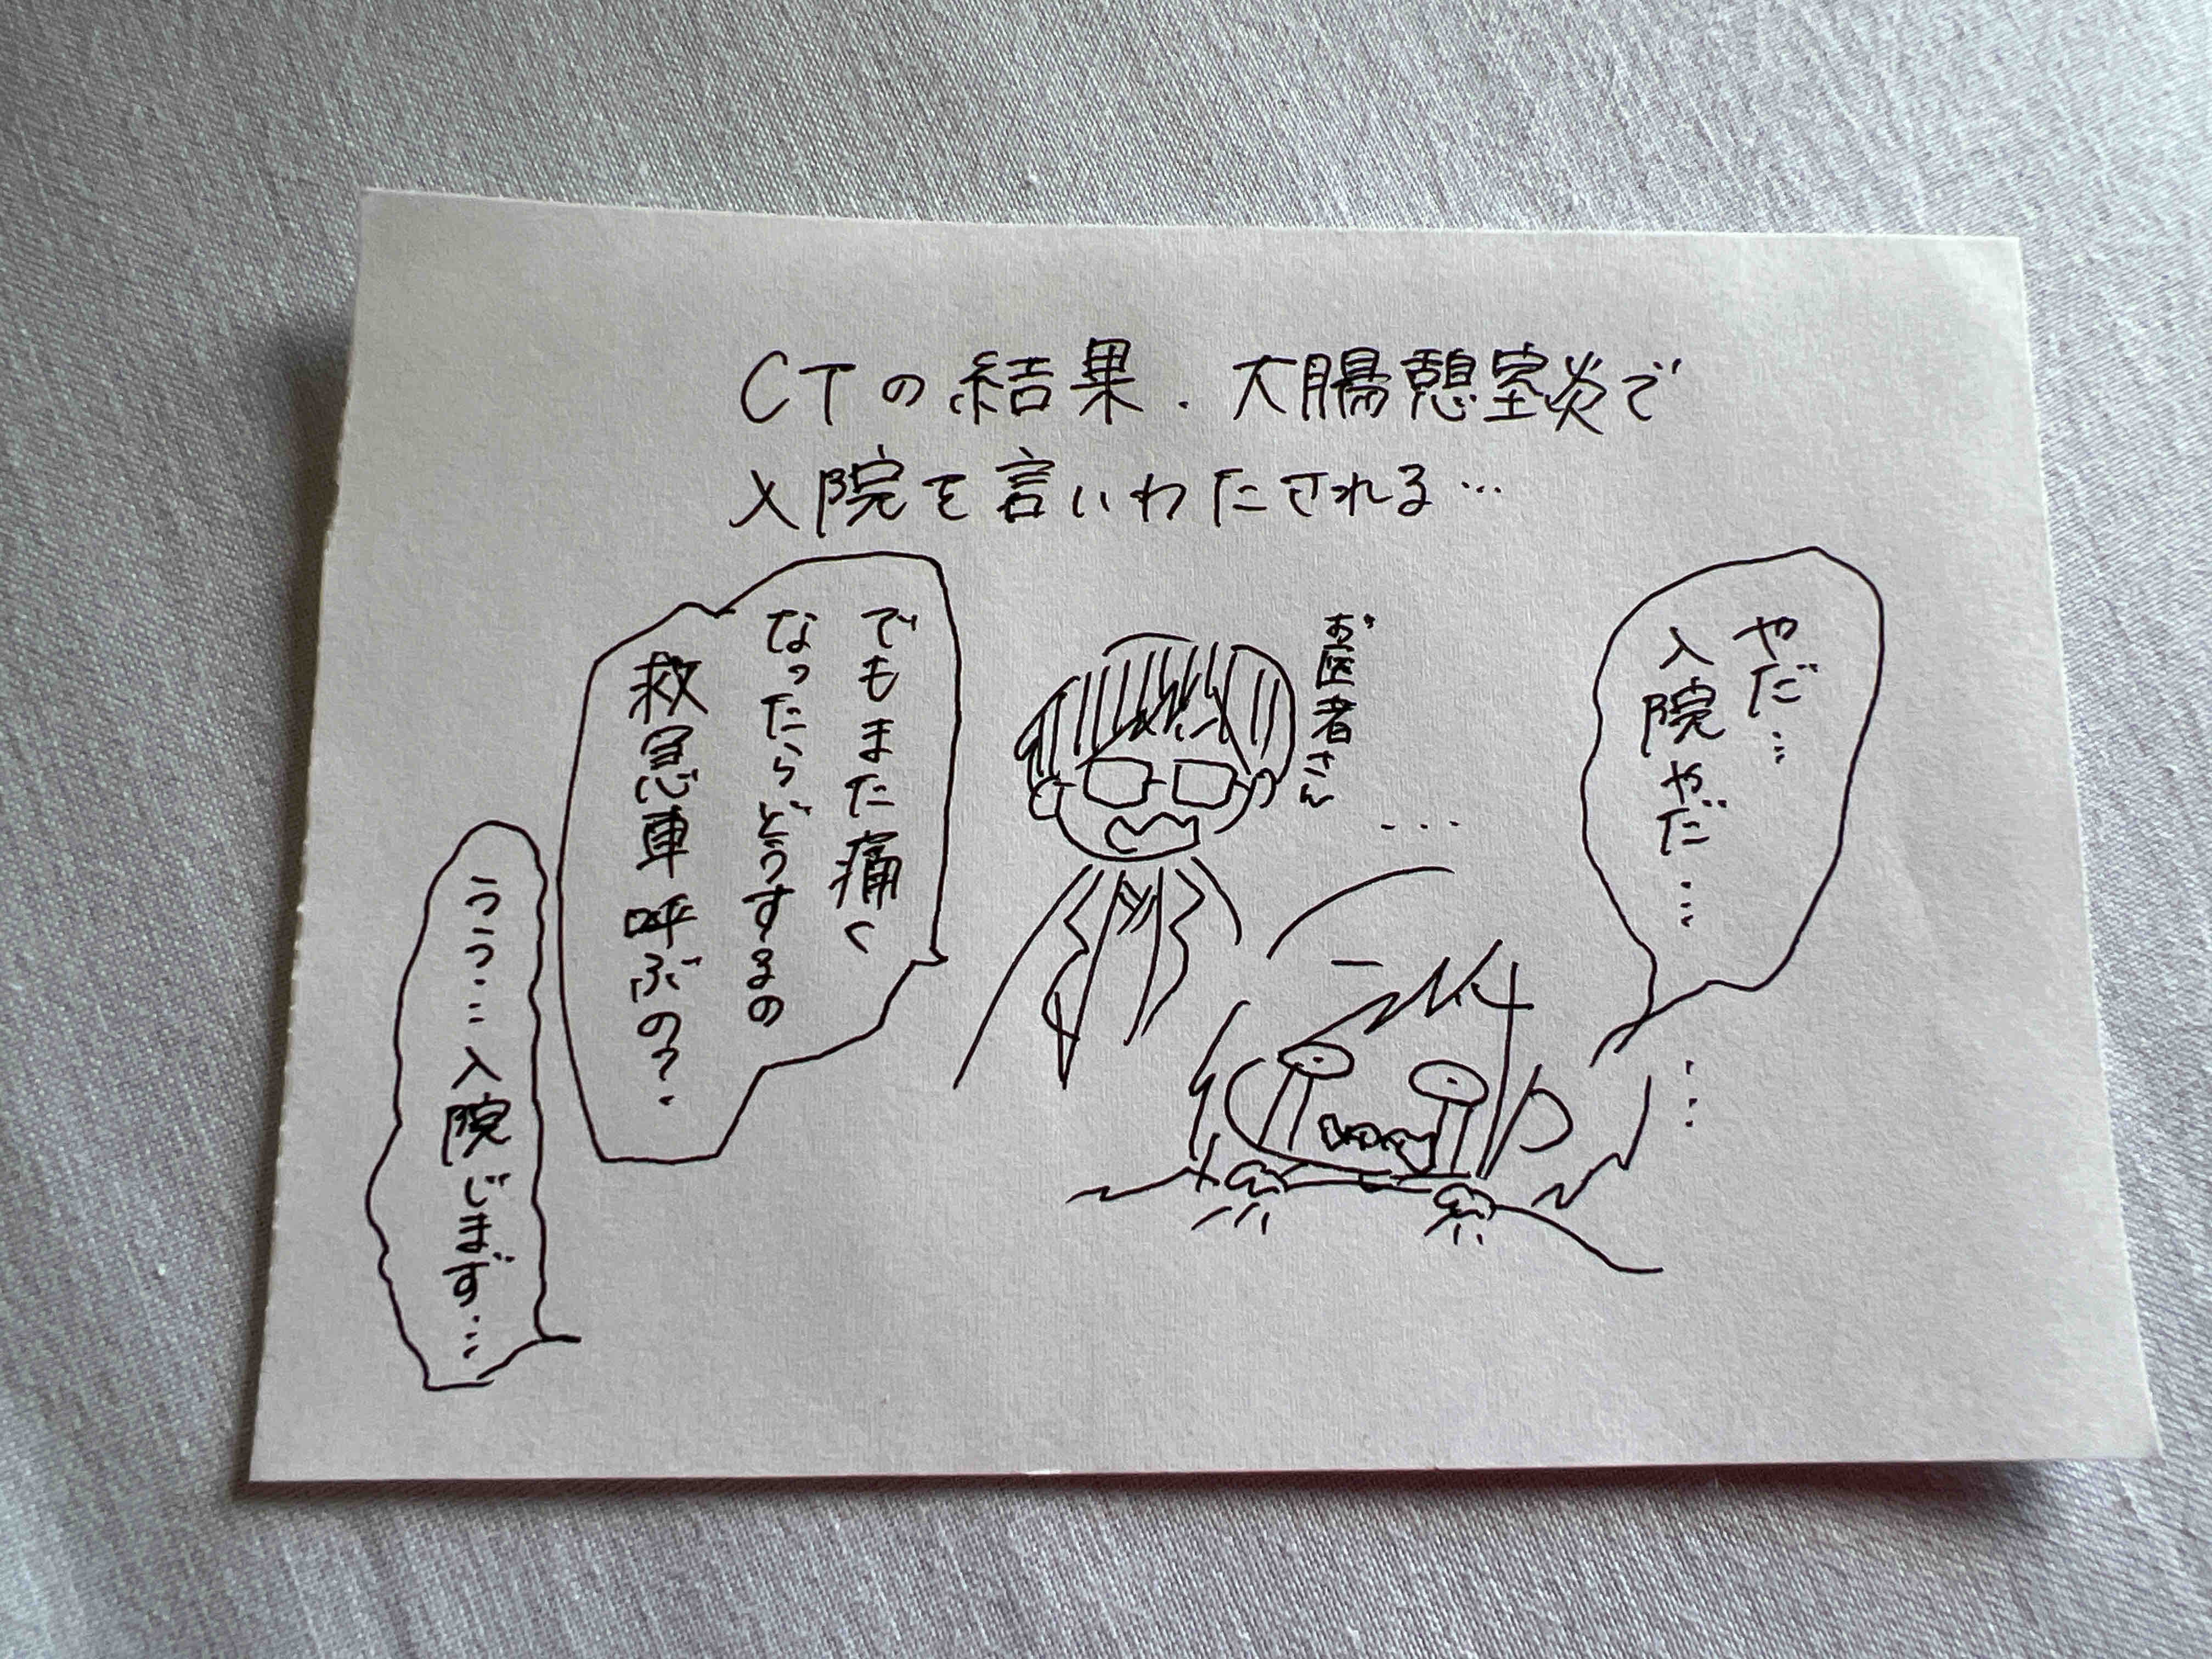 CTの結果、大腸憩室炎で
入院を言いわたされる…
やだ…
入院やだ…
お医者さん
でもまた痛く
なったらどうするの
救急車呼ぶの?
うう…入院じまず…